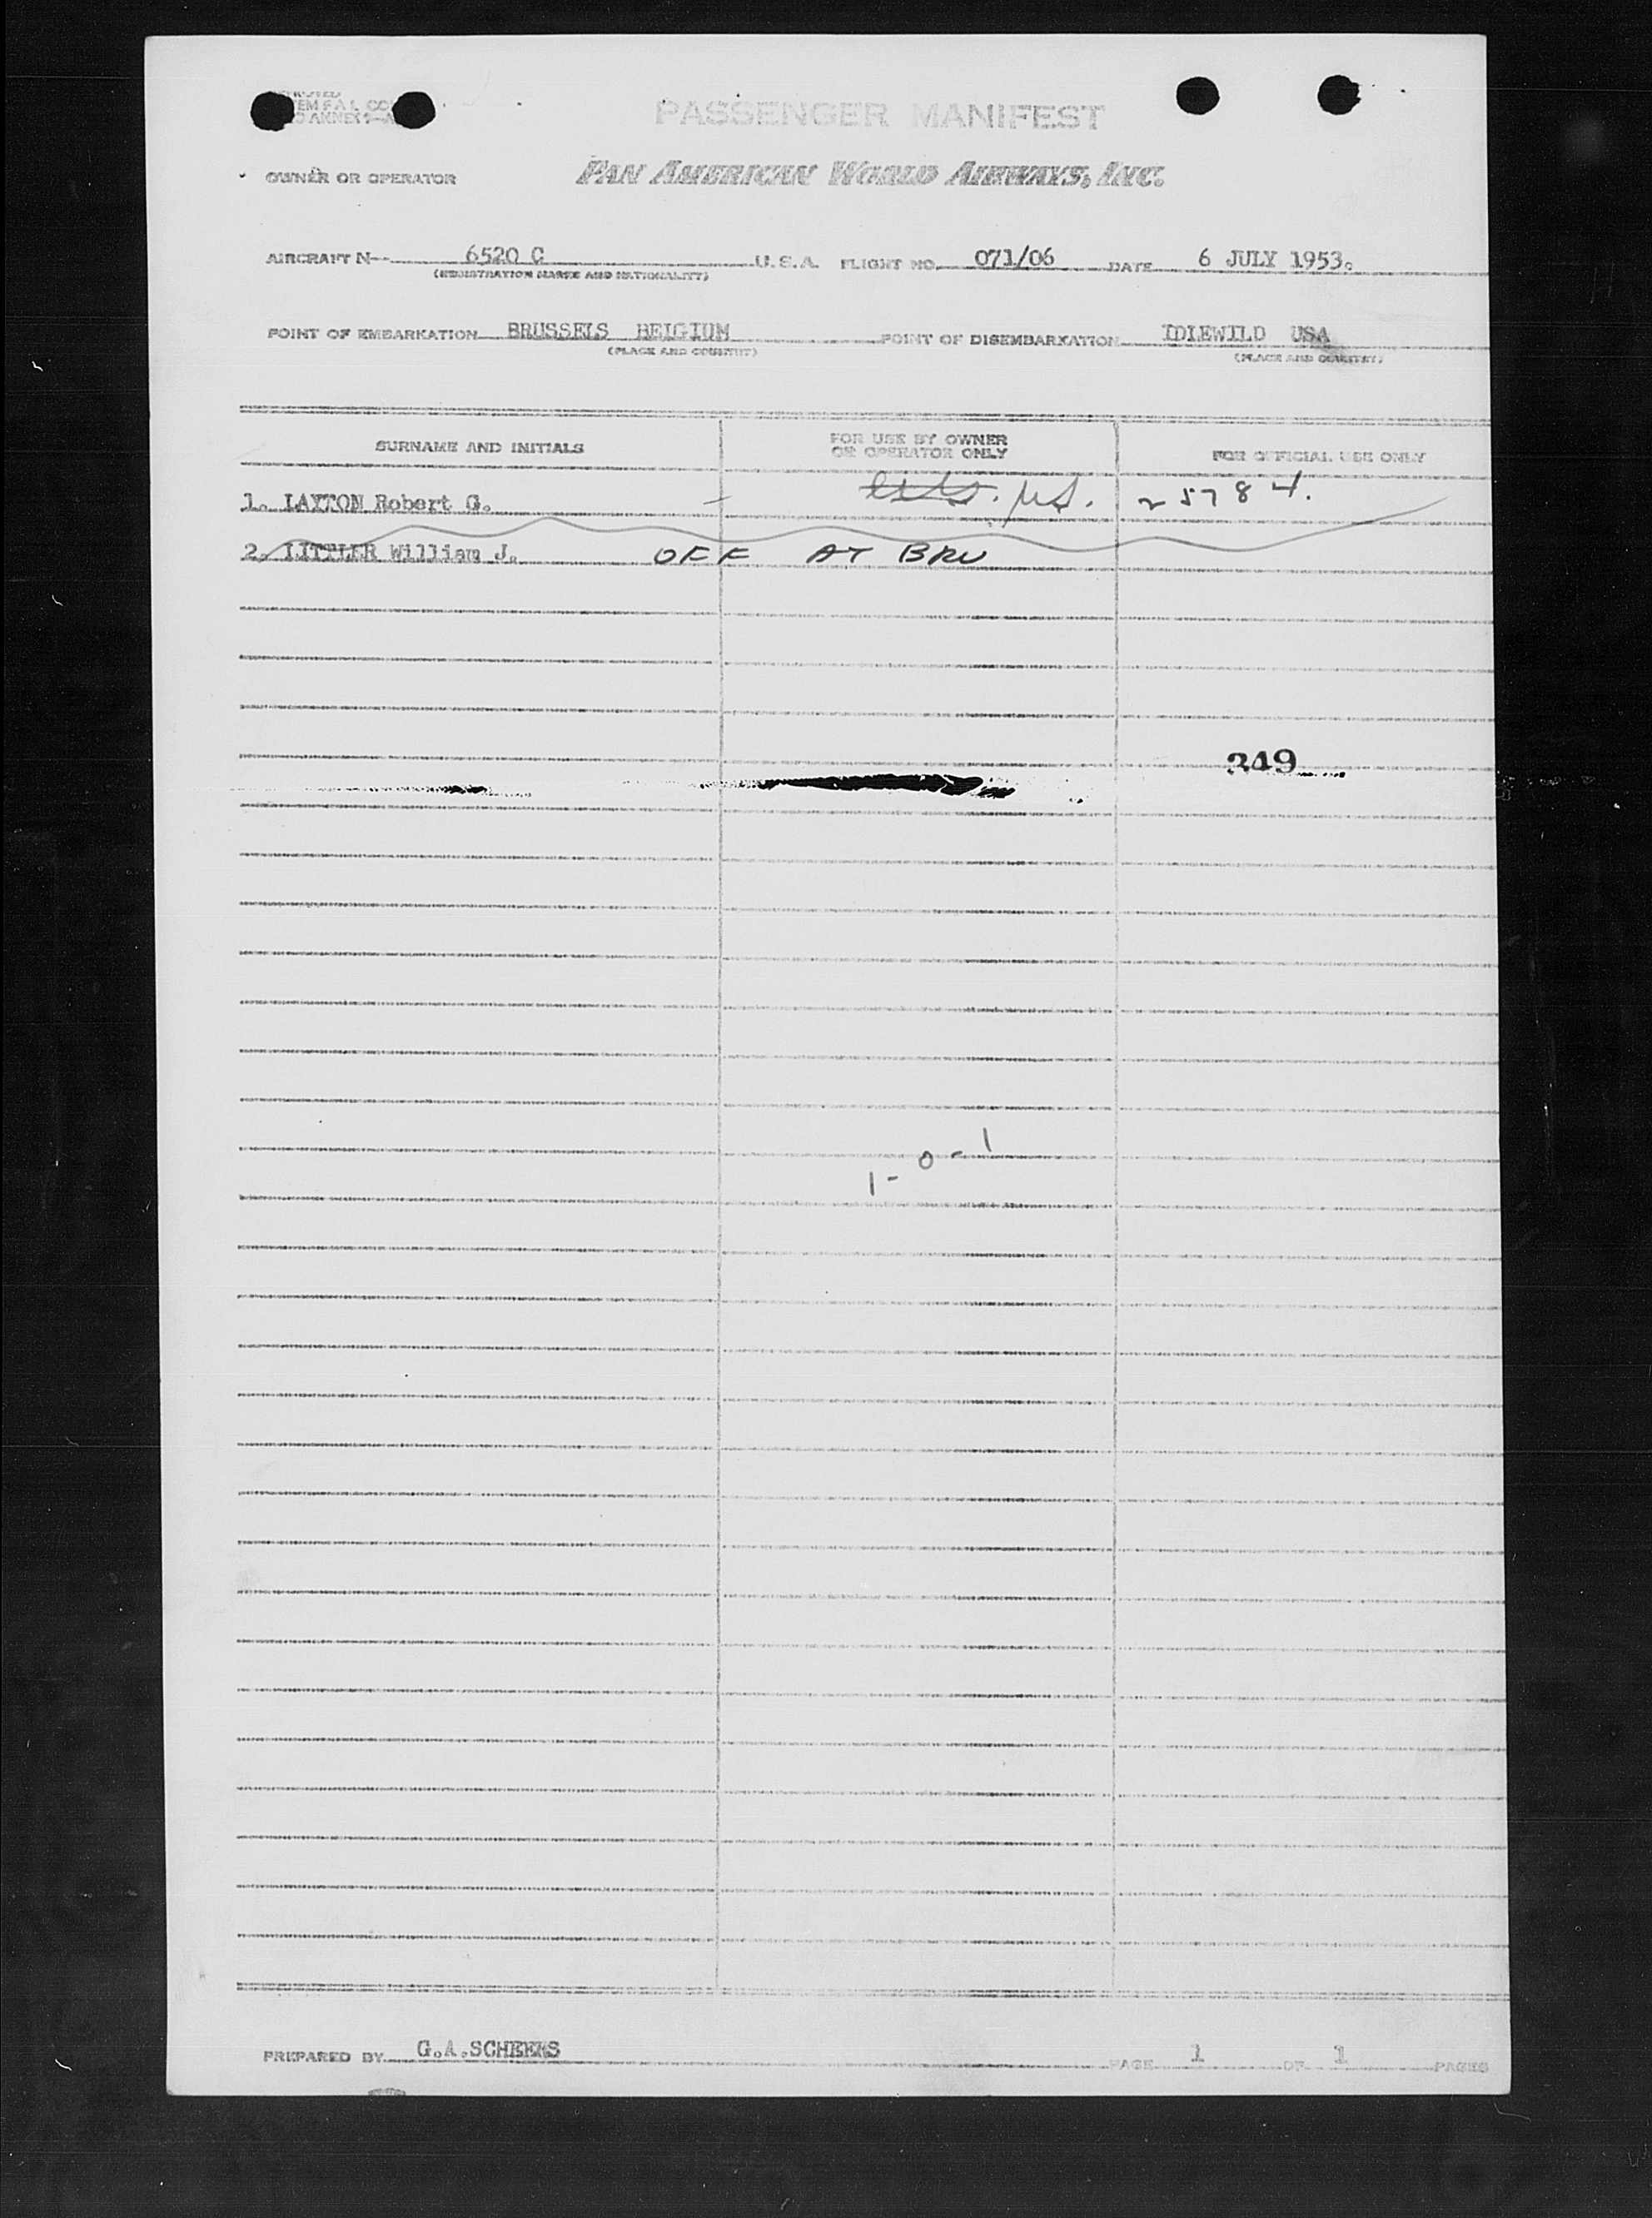 PASSENGER MANIFEST
OWNER OR OPERATOR PAN AMERICAN WORLD AIRWAYS, INC.
AIRCRAFT N-- 6520 C U.S.A. FLIGHT NO. 071/06 DATE 6 JULY 1953.
(REGISTRATION MARKS AND NATIONALITY)
POINT OF EMBARKATION BRUSSELS BELGIUM POINT OF DISEMBARKATION IDLEWILD USA
(PLACE AND COUNTRY) (PLACE AND COUNTRY)
SURNAME AND INITIALS FOR USE BY OWNER OR OPERATOR ONLY FOR OFFICIAL USE ONLY
1. LAYTON Robert G. 25784.
2. LITTLER William J. OFF AT BRU
349
1-0-1
PREPARED BY G.A.SCHEERS PAGE 1 OF 1 PAGES